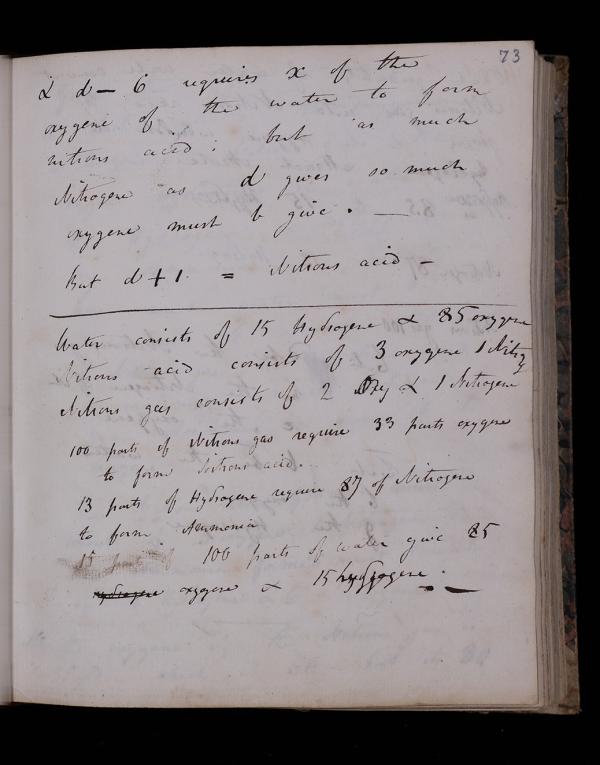 73
& d – 6 requires x of the
oxygene of the water to form
nitrous acid: but as much
Nitrogene as d gives so much
oxygene must b give. —
But d + 1. = Nitrous acid –
Water consists of 15 Hydrogene & 85 oxygene
Nitrous acid consists of 3 oxygene 1 Nitrog
Nitrous gas consists of 2 Oxy & 1 Nitrogene
100 parts of Nitrous gas require 33 parts oxygene
to form Nitrous acid.
13 parts of Hydrogene require 87 of Nitrogene
to form Ammonia
15 parts of 100 parts of water give 85
hydrogene oxygene & 15 hydrogene. –